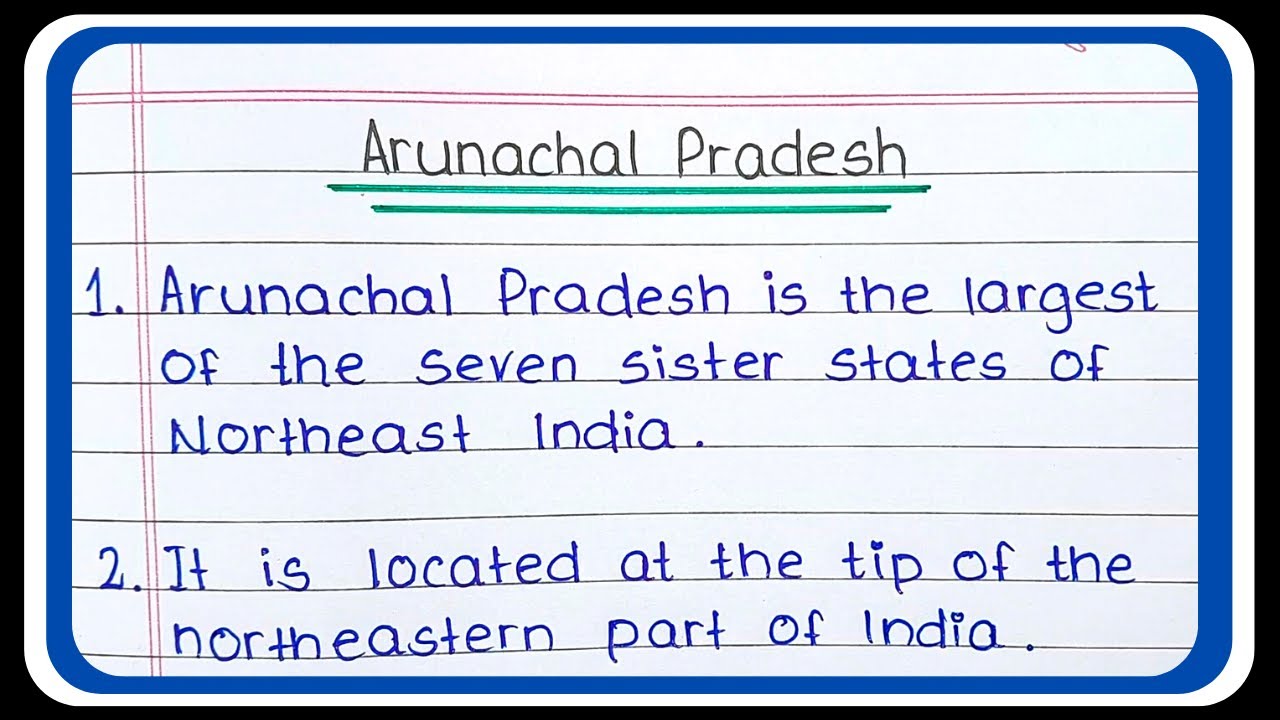 Arunachal Pradesh
1. Arunachal Pradesh is the largest
of the seven sister states of
Northeast India.
2. It is located at the tip of the
northeastern part of India.